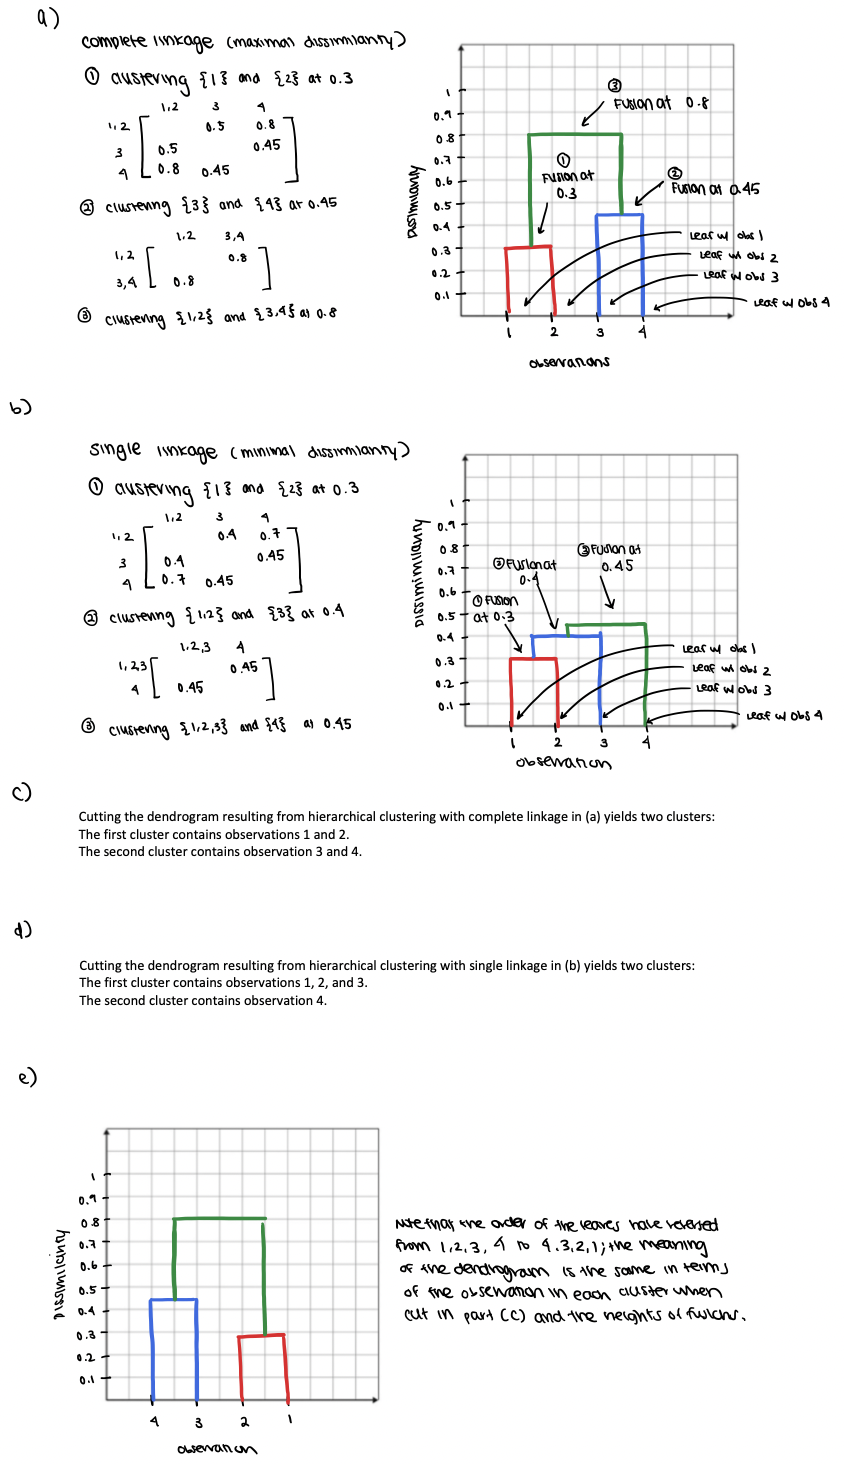 a)
complete linkage (maximal dissimilarity)
① clustering {1} and {2} at 0.3
1,2 3 4
1,2 0.5 0.8
3 0.5 0.45
4 0.8 0.45
② clustering {3} and {4} at 0.45
1,2 3,4
1,2 0.8
3,4 0.8
③ clustering {1,2} and {3,4} at 0.8
③
Fusion at 0.8
①
Fusion at
0.3
②
Fusion at 0.45
Leaf w/ obs 1
Leaf w/ obs 2
Leaf w/ obs 3
Leaf w/ obs 4
1
0.9
0.8
0.7
0.6
0.5
0.4
0.3
0.2
0.1
Dissimilarity
1 2 3 4
observations
b)
single linkage (minimal dissimilarity)
① clustering {1} and {2} at 0.3
1,2 3 4
1,2 0.4 0.7
3 0.4 0.45
4 0.7 0.45
② clustering {1,2} and {3} at 0.4
1,2,3 4
1,2,3 0.45
4 0.45
③ clustering {1,2,3} and {4} at 0.45
② Fusion at
0.4
③ Fusion at
0.45
① Fusion
at 0.3
Leaf w/ obs 1
Leaf w/ obs 2
Leaf w/ obs 3
Leaf w/ obs 4
1
0.9
0.8
0.7
0.6
0.5
0.4
0.3
0.2
0.1
Dissimimilarity
1 2 3 4
observation
c)
Cutting the dendrogram resulting from hierarchical clustering with complete linkage in (a) yields two clusters:
The first cluster contains observations 1 and 2.
The second cluster contains observation 3 and 4.
d)
Cutting the dendrogram resulting from hierarchical clustering with single linkage in (b) yields two clusters:
The first cluster contains observations 1, 2, and 3.
The second cluster contains observation 4.
e)
1
0.9
0.8
0.7
0.6
0.5
0.4
0.3
0.2
0.1
Dissimilarity
4 3 2 1
observation
Note that the order of the leaves have reversed
from 1,2,3,4 to 4,3,2,1; the meaning
of the dendrogram is the same in terms
of the observation in each cluster when
cut in part (c) and the heights of